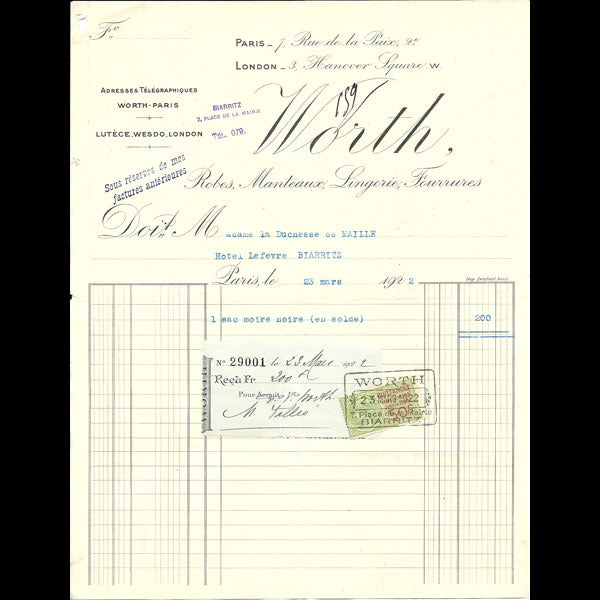 Fo
PARIS_7, Rue de la Paix, 2e
LONDON_3, Hanover Square.W.
ADRESSES TÉLÉGRAPHIQUES
WORTH-PARIS
LUTÈCE,WESDO,LONDON
BIARRITZ
3, PLACE DE LA MAIRIE
TÉL. 079.
159
Worth,
Sous réserves de mos
factures antérieures
Robes, Manteaux, Lingerie, Fourrures
Doit M adame la Duchesse de MAILLE
Hotel Lefevre BIARRITZ
Paris, le 23 mars 1922
1 sac moire noire (en solde) 200
WORTH
No 29001 le 23 Mars 1922
Reçu Fr. 200
Pour Acquit
Worth
WORTH
23 1922
7, Place de la Mairie
BIARRITZ